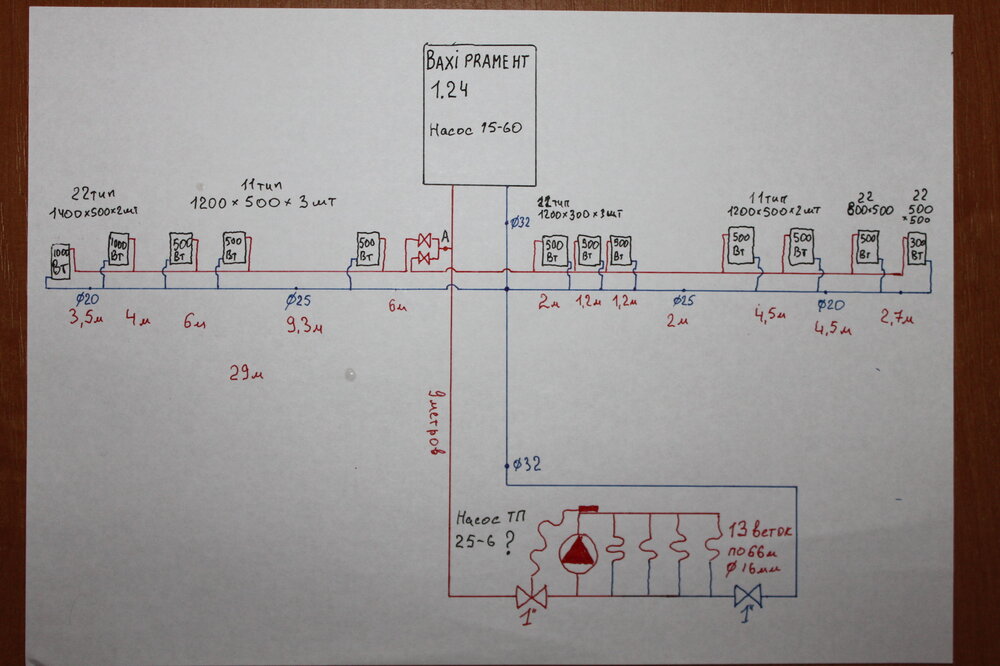 BAXI PRAMEHT
1.24
Насос 15-60
22тип
1400×500×2шт
11 тип
1200 × 500 × 3 шт
22тип
1200×300×3шт
11тип
1200×500×2шт
22
800×500
22
500
×500
1000
Вт
1000
Вт
500
Вт
500
Вт
500
Вт
A
ø32
500
Вт
500
Вт
500
Вт
500
Вт
500
Вт
500
Вт
300
Вт
ø20
ø25
ø25
ø20
3,5м
4м
6м
9,3м
6м
2м
1,2м
1,2м
2м
4,5м
4,5м
2,7м
29м
9 метров
ø32
Насос ТП
25-6 ?
13 веток
по 66м
ø16мм
1"
1"